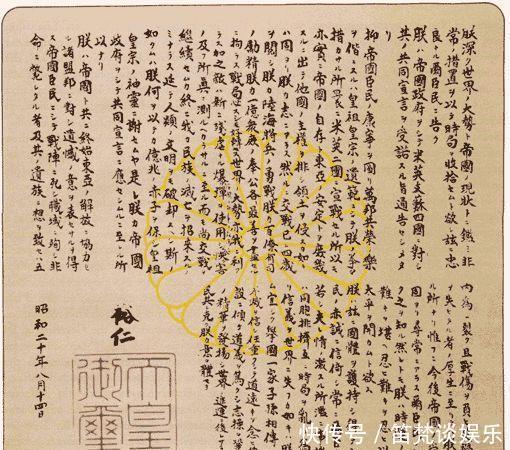 朕深ク世界ノ大勢ト帝國ノ現狀トニ鑑ミ非
常ノ措置ヲ以テ時局ヲ收拾セムト欲シ茲ニ忠
良ナル爾臣民ニ告ク
朕ハ帝國政府ヲシテ米英支蘇四國ニ對シ
其ノ共同宣言ヲ受諾スル旨通告セシメタ
リ
抑帝國臣民ノ康寧ヲ圖リ萬邦共榮ノ樂
ヲ偕ニスルハ皇祖皇宗ノ遺範ニシテ朕ノ
措カサル所曩ニ米英二國ニ宣戰セル所以モ
亦實ニ帝國ノ自存ト東亞ノ安定トヲ庶幾
スルニ出テ他國ノ主權ヲ排シ領土ヲ侵ス如キ
ハ固ヨリ朕カ志ニアラス然ルニ交戰已ニ四歲
ヲ閱シ朕カ陸海將兵ノ勇戰朕カ百僚有司
ノ勵精朕カ一億衆庶ノ奉公各最善ヲ盡セル
ニ拘ラス戰局必スシモ好轉セス世界ノ大勢亦我ニ利
ラス加之敵ハ新ニ殘虐ナル爆彈ヲ使用シ慘害
ノ及フ所眞ニ測ルヘカラサルニ至ル而モ尚交戰
繼續セムカ終ニ我カ民族ノ滅亡ヲ招來スル
ミナラス延テ人類ノ文明ヲモ破却スヘシ斯
如クムハ朕何ヲ以テカ億兆ノ赤子ヲ保シ皇祖
皇宗ノ神靈ニ謝セムヤ是レ朕カ帝國
政府ヲシテ共同宣言ニ應セシムルニ至レル所
以ナリ
朕ハ帝國ト共ニ終始東亞ノ解放ニ協力セ
ル諸盟邦ニ對シ遺憾ノ意ヲ表セサルヲ得
ス帝國臣民ニシテ戰陣ニ死シ職域ニ殉シ非
命ニ斃レタル者及其ノ遺族ニ想ヲ致セハ五
内爲ニ裂ク且戰傷ヲ負ヒ
ヲ失ヒタル者ノ厚生ニ至リ
ル所ナリ惟フニ今後帝國
固ヨリ尋常ニアラス爾臣民
ク之ヲ知ル然レトモ朕ハ時
難キヲ堪ヘ忍ヒ難キヲ
太平ヲ開カムト欲ス
朕ハ茲ニ國體ヲ護持シ
民ノ赤誠ニ信倚シ常ニ
若シ夫レ情ノ激スル所濫
同胞排擠互ニ時局ヲ亂
信義ヲ世界ニ失フカ如キハ朕
宜シク擧國一家子孫相傳
不滅ヲ信シ任重クシテ道遠キヲ念ヒ
設ニ傾ケ道義ヲ篤クシ志操ヲ鞏
精華ヲ發揚シ世界ノ進運ニ後レ
民其レ克ク朕カ意ヲ體セ
裕仁
天皇
御璽
昭和二十年八月十四日
快传号／笛梵谈娱乐